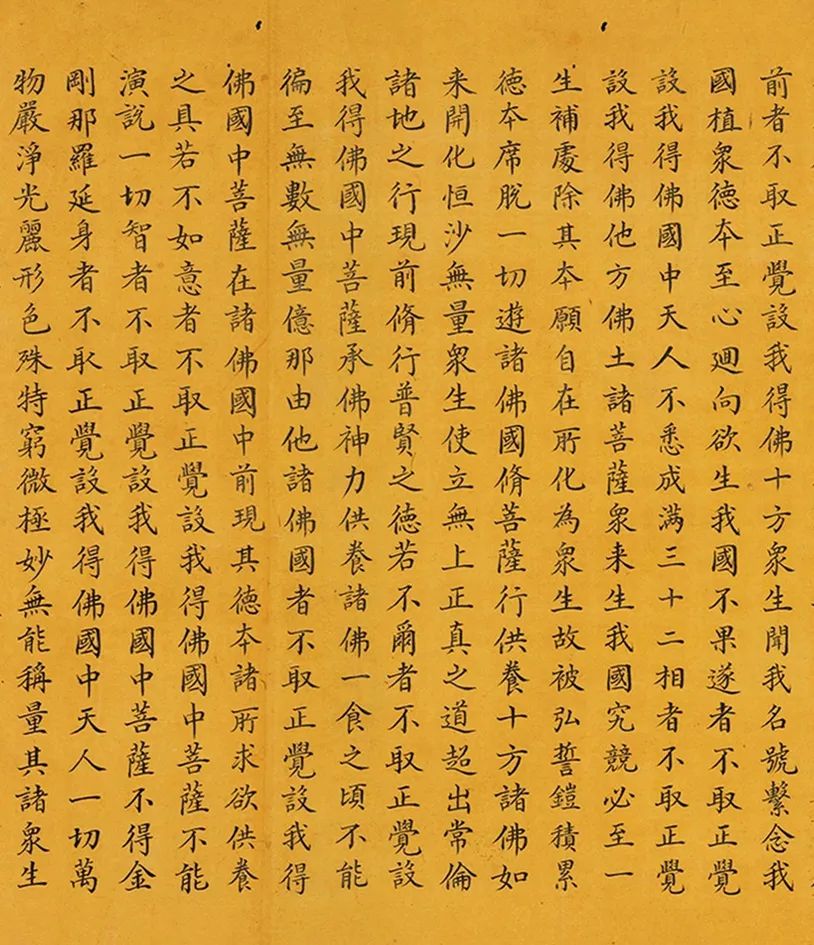 前者不取正覺設我得佛十方衆生聞我名號繫念我
國植衆德夲至心廻向欲生我國不果遂者不取正覺
設我得佛國中天人不悉成滿三十二相者不取正覺
設我得佛他方佛土諸菩薩衆来生我國究竸必至一
生補處除其夲願自在所化為衆生故被弘誓鎧積累
德夲席脫一切遊諸佛國脩菩薩行供養十方諸佛如
来開化恒沙無量衆生使立無上正真之道超出常倫
諸地之行現前脩行普賢之德若不爾者不取正覺設
我得佛國中菩薩承佛神力供養諸佛一食之頃不能
徧至無數無量億那由他諸佛國者不取正覺設我得
佛國中菩薩在諸佛國中前現其德夲諸所求欲供養
之具若不如意者不取正覺設我得佛國中菩薩不能
演說一切智者不取正覺設我得佛國中菩薩不得金
剛那羅延身者不取正覺設我得佛國中天人一切萬
物嚴淨光麗形色殊特窮微極妙無能稱量其諸衆生